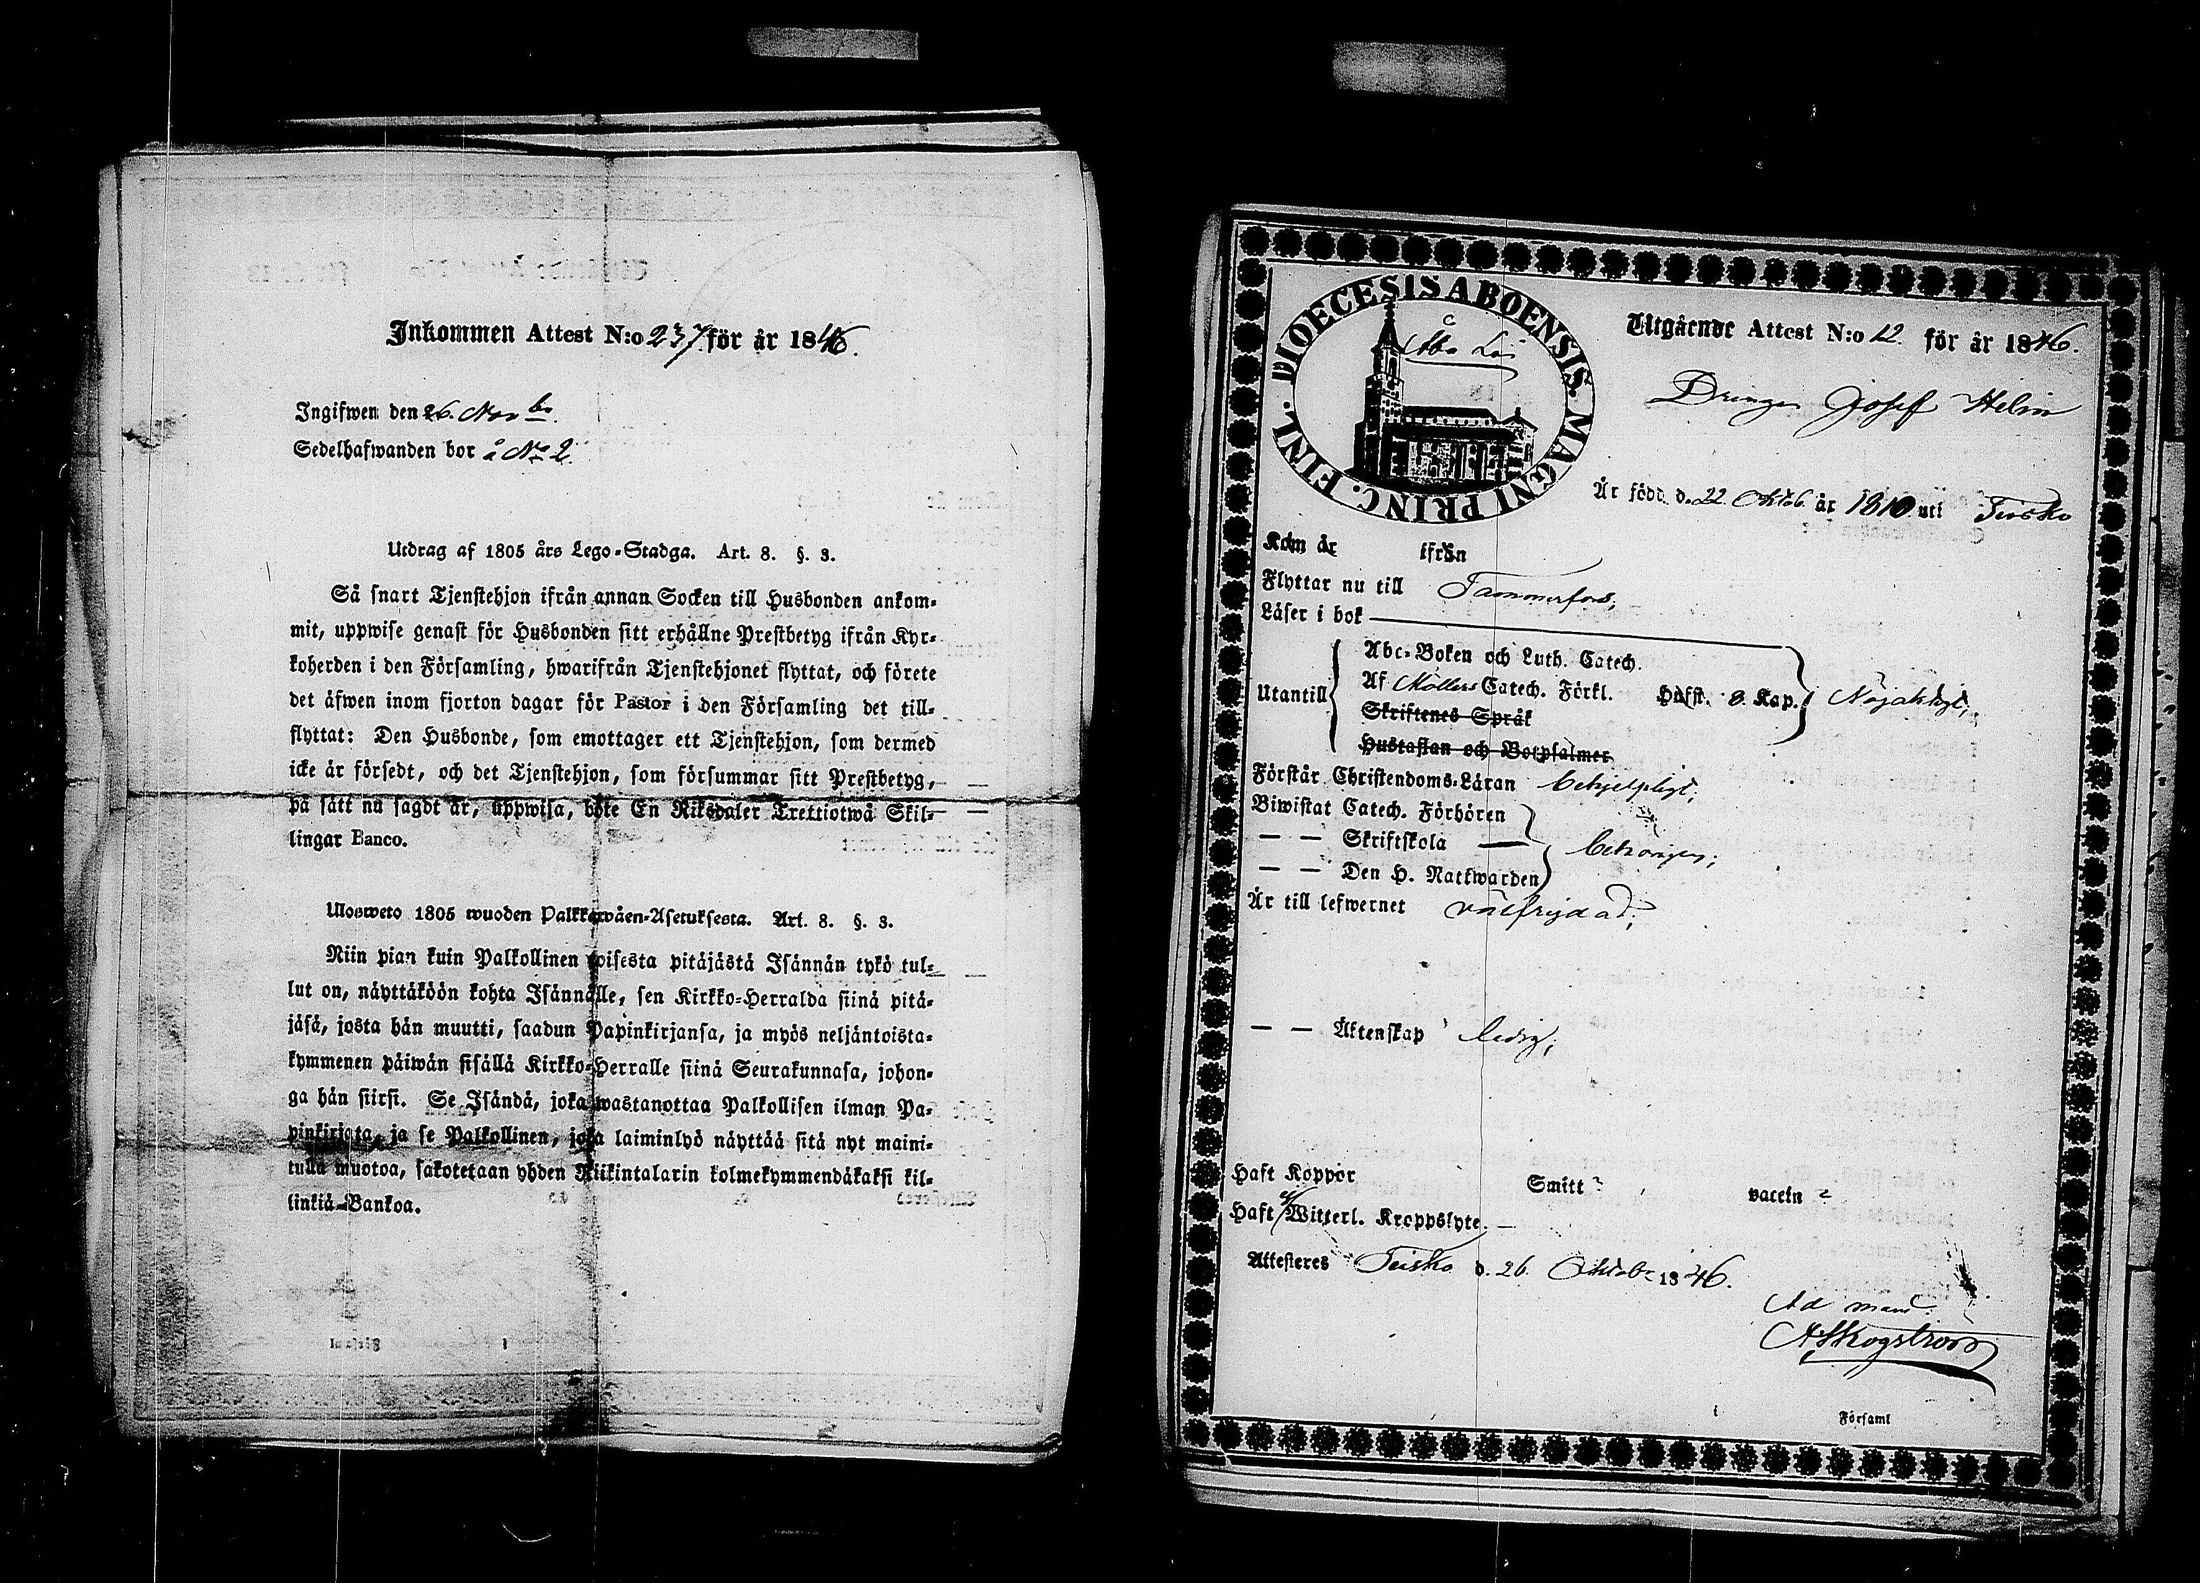 Inkommen Attest N:o 237. för år 1846.
Ingifwen den 26. Nov br.
Sedelhafwanden bor å No 2.
Utdrag af 1805 års Lego-Stadga. Art. 8. §. 3.
Så snart Tjenstehjon ifrån annan Socken till Husbonden ankom-
mit, uppwise genast för Husbonden sitt erhållne Prestbetyg ifrån Kyr-
koherden i den Församling, hwarifrån Tjenstehjonet flyttat, och förete
det äfwen inom fjorton dagar för Pastor i den Församling det till-
flyttat: Den Husbonde, som emottager ett Tjenstehjon, som dermed
icke är försedt, och det Tjenstehjon, som försummar sitt Prestbetyg,
på sätt nu sagdt är, uppwisa, böte En Riksdaler Trettiotwå Skil-
lingar Banco.
Ulosweto 1805 wuoden Palkkawäen-Asetuksesta. Art. 8. §. 3.
Niin pian kuin Palkollinen toisesta pitäjästä Isännän tykö tul-
lut on, näyttäköön kohta Isännälle, sen Kirkko-Herralda siinä pitä-
jäsä, josta hän muutti, saadun Papinkirjansa, ja myös neljäntoista-
kymmenen päiwän sisällä Kirkko-Herralle siinä Seurakunnasa, johon-
ga hän siirsi. Se Isändä, joka wastanottaa Palkollisen ilman Pa-
pinkirjata, ja se Palkollinen, joka laiminlyö näyttää sitä nyt maini-
tulla muotoa, sakotetaan yhden Riikintalarin kolmekymmendäkaksi kil-
linkiä Bankoa.
DIOECESIS ABOENSIS. MAGNI PRINC. FINL.
Åbo Län
Utgående Attest N:o 12. för år 1846.
Drängen Josef Helin
Är född d. 22 Oktob. år 1810 uti Teisko
Kom år ifrån
Flyttar nu till Tammerfors,
Läser i bok
Utantill
Abc-Boken och Luth. Catech.
Af Möllers Catech. Förkl. Hufst. 8. Kap.
Skriftenes Språk
Hustaflan och Botpsalmer
Nöjaktigt,
Förstår Christendoms-Läran behjelpligt,
Biwistat Catech. Förhören
— — Skriftskola
— — Den H. Nattwarden
behörigen;
Är till lefwernet välfrejdad;
— — Äktenskap ledig;
Haft Koppor Smitt ? vaccin ?
Haft Witterl. Kroppslyte. —
Attesteres Teisko d. 26. Oktob. 1846.
Ad mand.
A Skogström
Församl